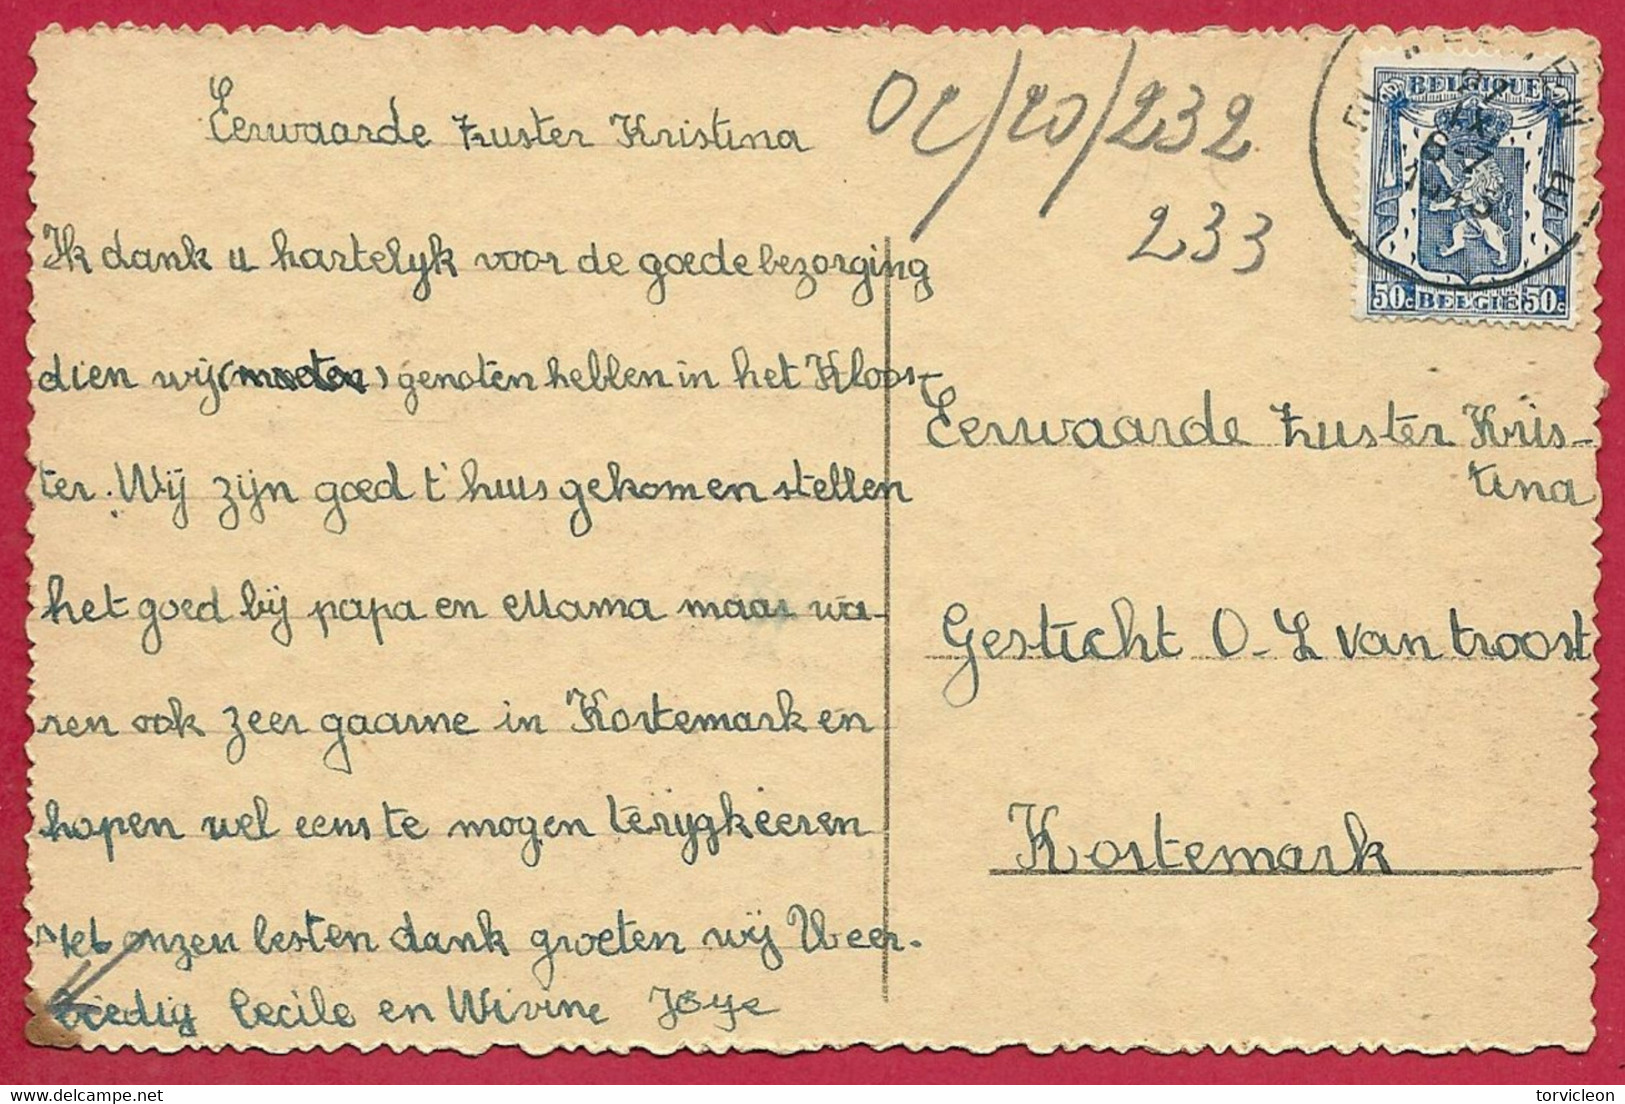 Eerwaarde Zuster Kristina
Ik dank u hartelijk voor de goede bezorging
dien wij (moeten) genoten hebben in het Kloos-
ter. Wij zijn goed t'huis gekomen stellen
het goed bij papa en Mama maar wa-
ren ook zeer gaarne in Kortemark en
hopen wel eens te mogen terijgkeeren
Met onzen besten dank groeten wij U eer-
biedig Cecile en Wivine
02/20/232
233
BELGIQUE
50c BELGIË 50c
Eerwaarde Zuster Kris-
tina
Gesticht O-L van troost
Kortemark
torvicleon